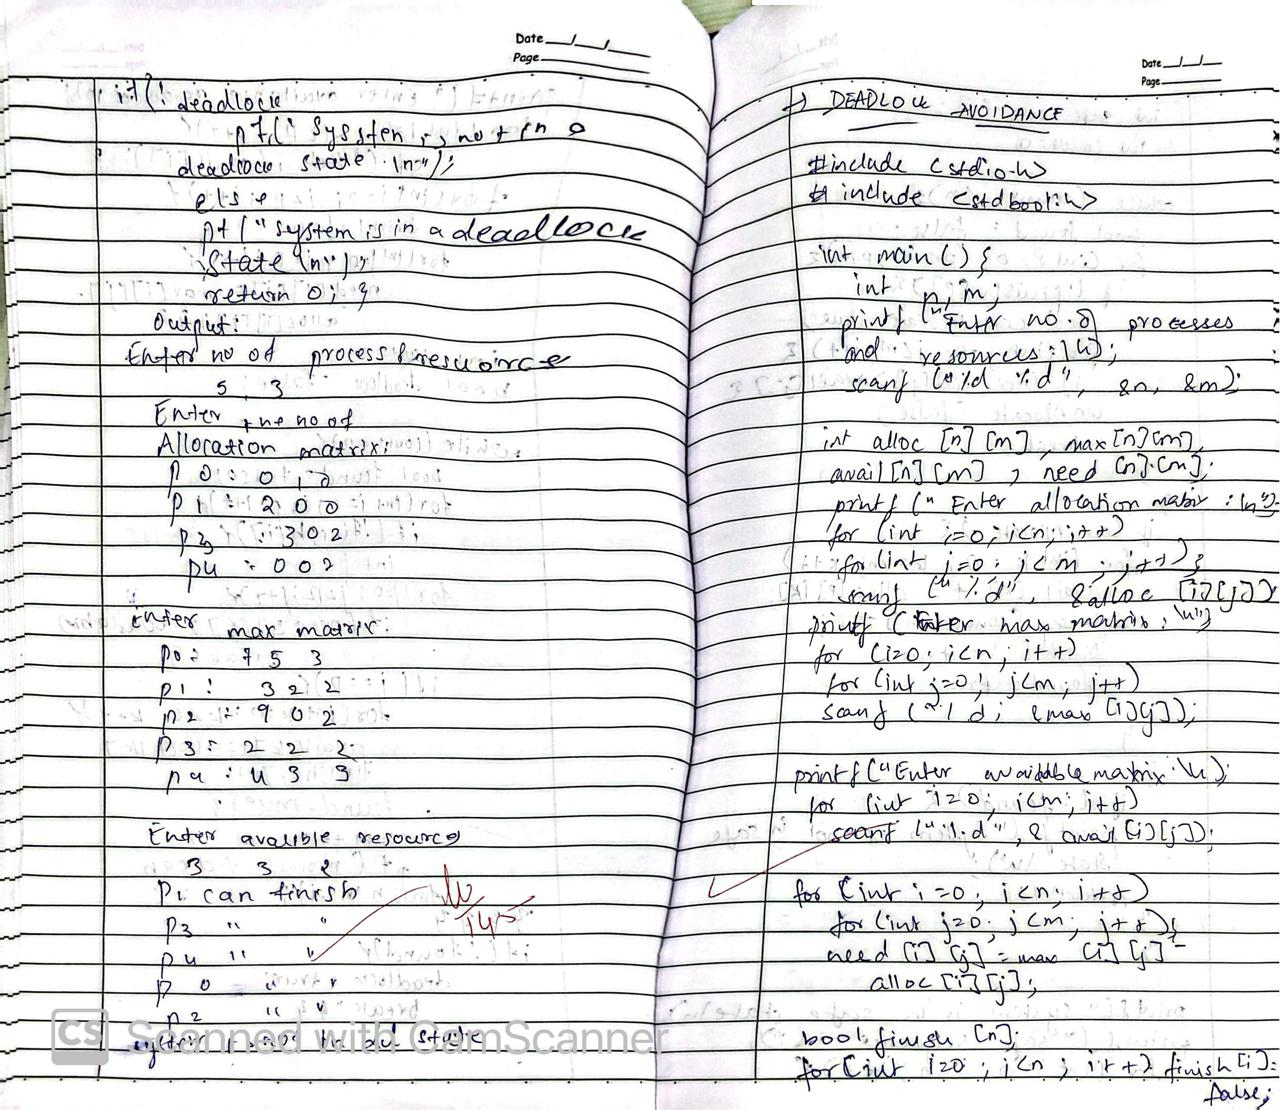 Date __/__/__
Page
if(! deadlock
pf(" Sysstem is not in a
deadlock state. \n");
else
pf("system is in a deadlock
State \n");
return 0; }
Output:
Enter no of process & resuoirce
5, 3
Enter the no of
Allocation matrix:
P 0: 0 1 0
P 1: 2 0 0
P3 : 3 0 2
P4 : 0 0 2
Enter max matrix:
P0: 7 5 3
P1 : 3 2 2
P2 : 9 0 2
P3 : 2 2 2
P4 : 4 3 3
Enter avalible resources
3 3 2
P1 can finish
P3 " "
P4 " "
P0 " "
P2 " "
system is not in state
Date __/__/__
Page
→ DEADLOCK AVOIDANCE
#include <stdio.h>
# include <stdbool.h>
int main () {
int n, m;
printf ("Enter no. of processes
and resources : \n);
scanf ("%d %d", &n, &m);
int alloc [n] [m], max [n][m],
avail [n] [m] , need [n].[m];
printf (" Enter allocation matrix : \n");
for (int i=0; i<n; i++)
for (int j=0; j<m ; j++) {
scanf ("%d", &alloc [i][j])
printf (Enter max matrix : \n")
for (i=0; i<n; i++)
for (int j=0; j<m; j++)
scanf ("%d; &max [i][j]);
printf ("Enter available matrix \n);
for (int i=0; i<m; i++)
scanf ("%d", & avail [i][j]);
for (int i=0; i<n; i++)
for (int j=0; j<m; j++) {
need [i] [j] = max [i] [j] -
alloc [i][j];
bool finish [n];
for (int i=0; i<n ; i++) finish [i]=
false;
CS Scanned with CamScanner